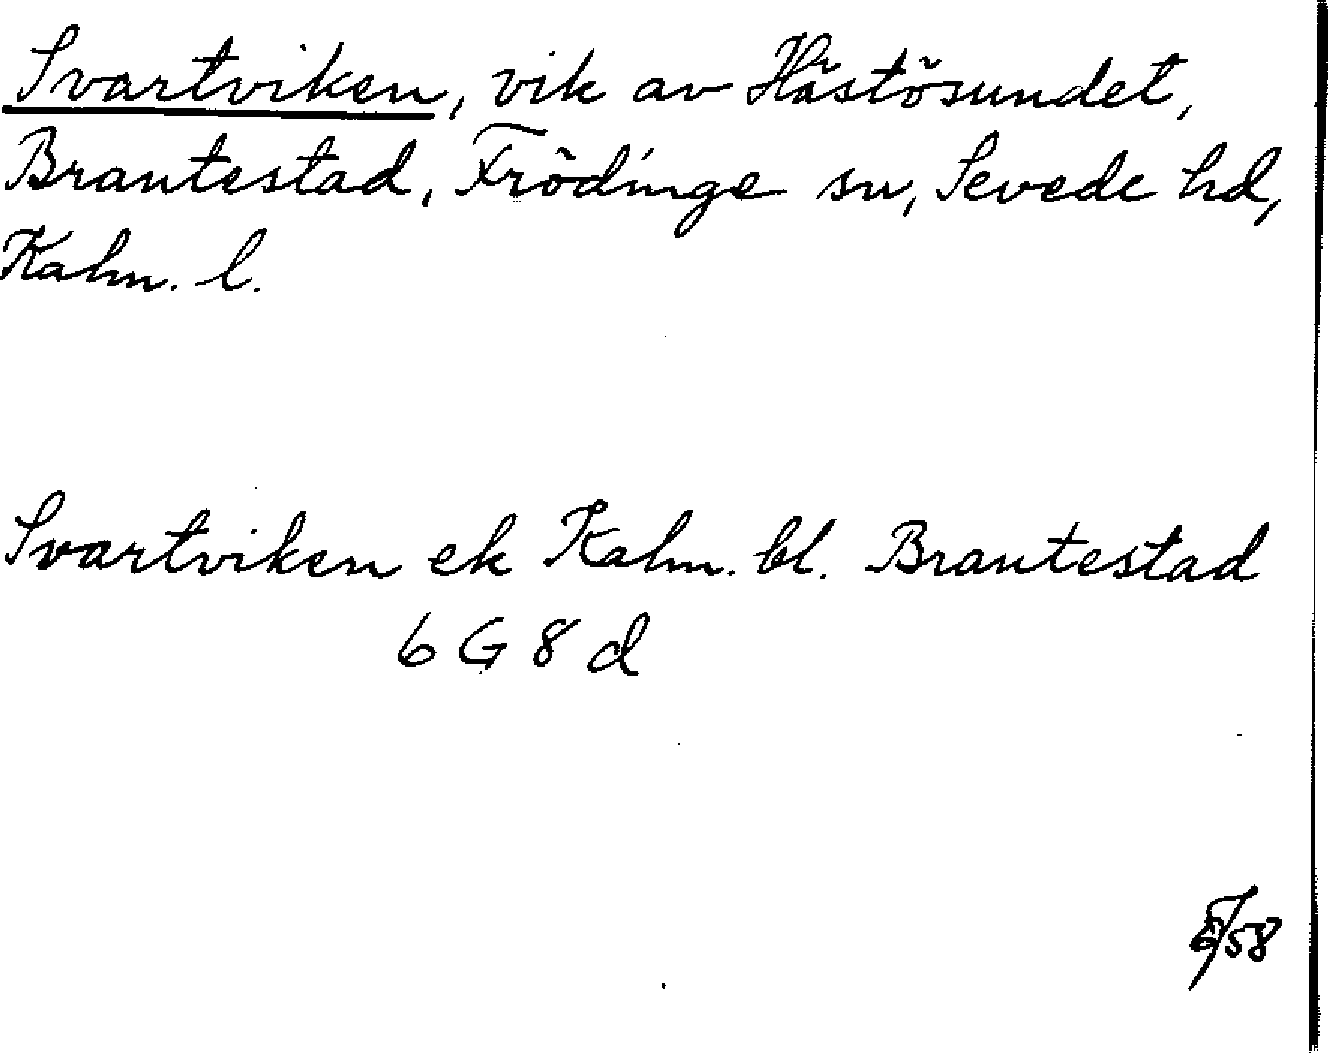 Svartviken, vik av Hästösundet,
Brantestad, Frödinge sn, Sevede hd,
Kalm. l.
Svartviken ek Kalm. bl. Brantestad
6 G 8 d
/58